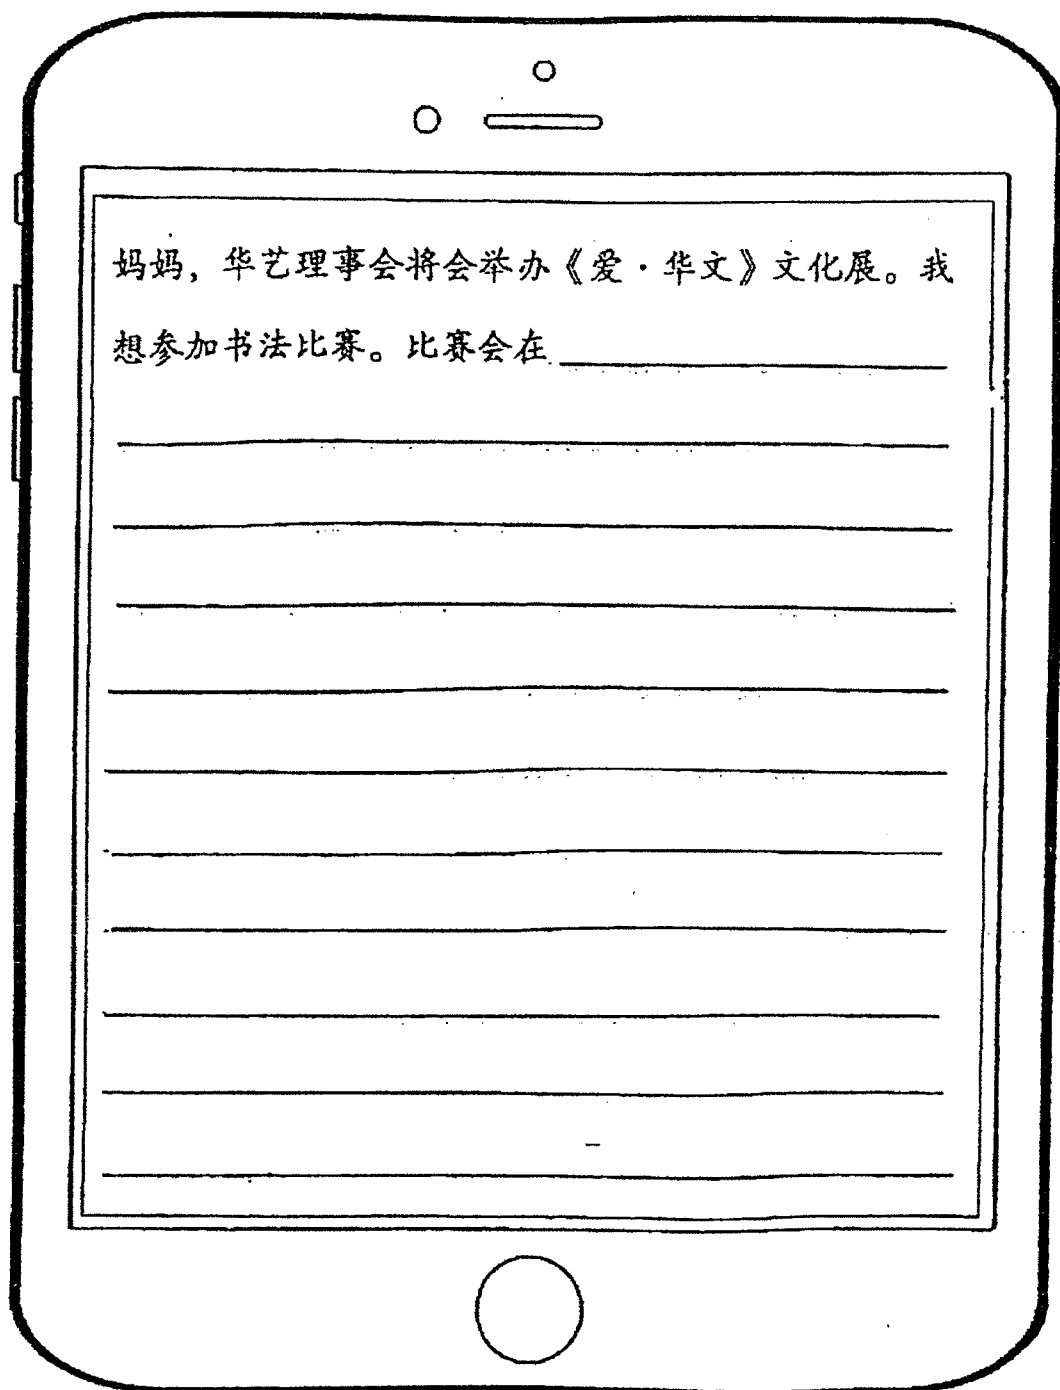 妈妈，华艺理事会将会举办《爱·华文》文化展。我
想参加书法比赛。比赛会在